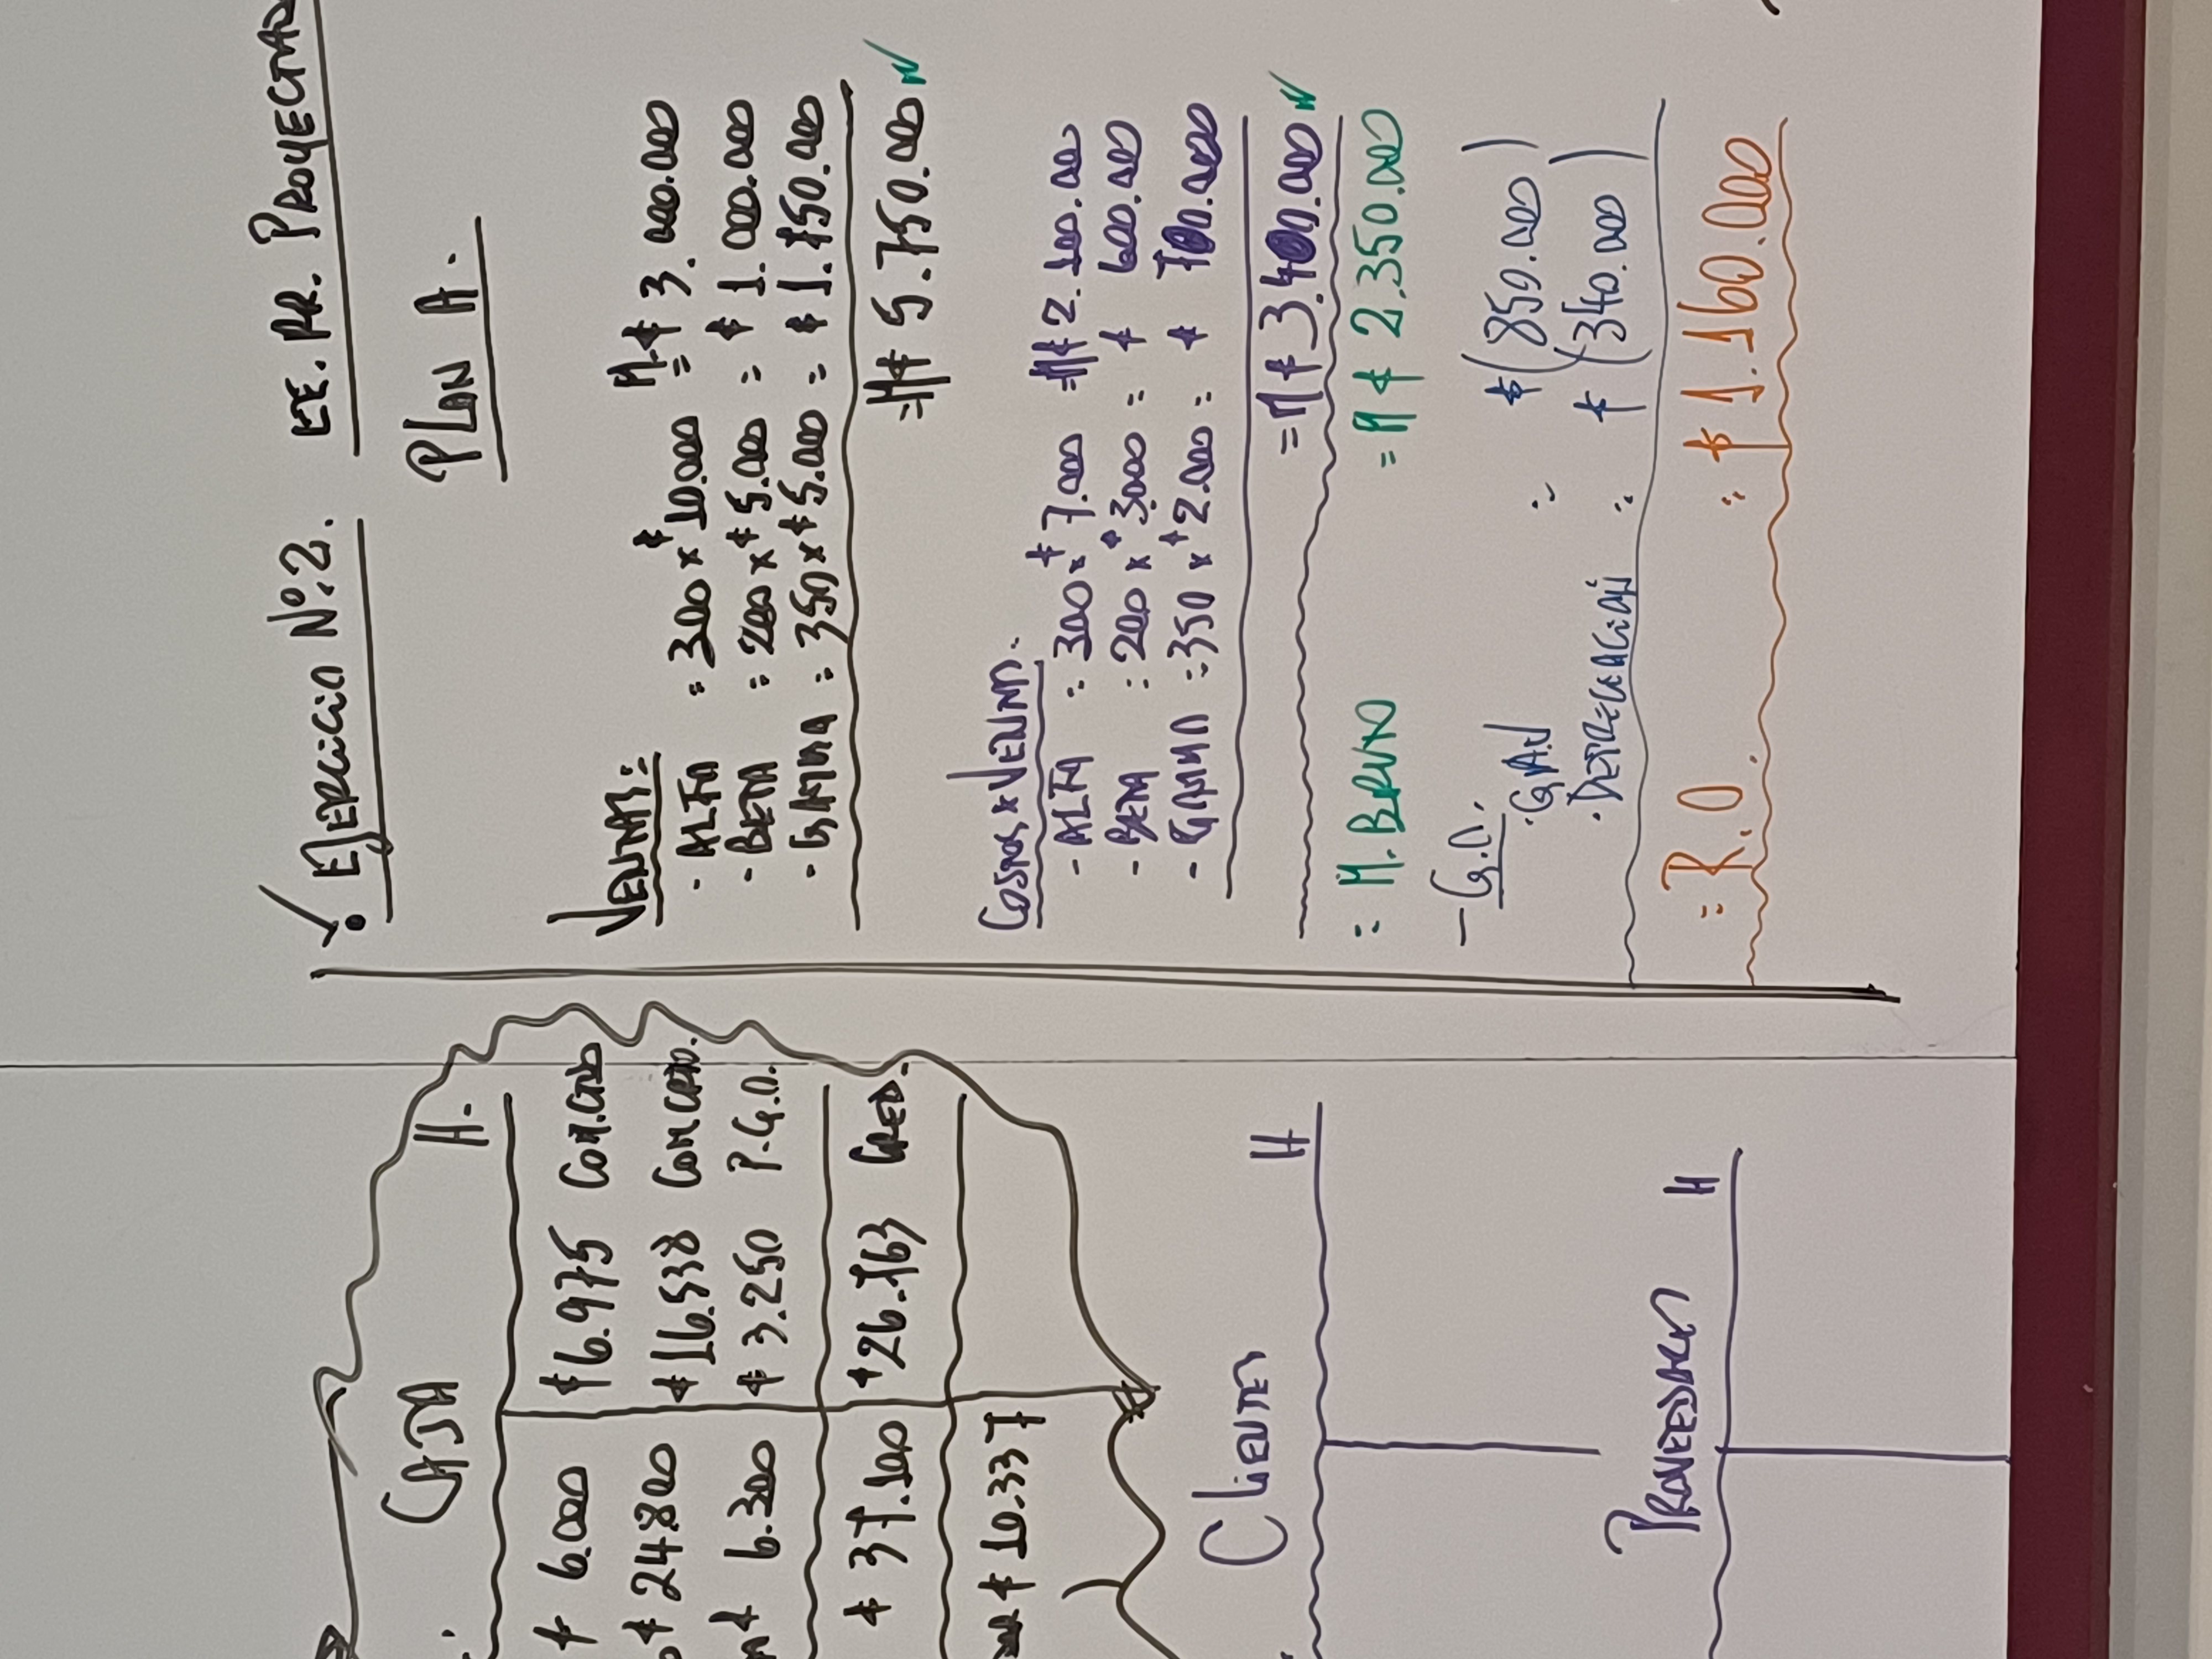 CAJA H.
$ 6.000 $6.975 Com.Ctdo
$ 24.800 $16.538 Com Crto.
$ 6.300 $ 3.250 P.G.O.
$ 37.100 $26.763 Cred.
$ 10.337
Clientes H
Proveedores H
Ejercicio Nº.2. EE.RR. Proyectado
PLAN A.
Ventas:
- ALFA = 300 x $10.000 = M.$ 3.000.000
- BETA = 200 x $ 5.000 = $ 1.000.000
- GAMMA = 350 x $5.000 = $ 1.750.000
= M$ 5.750.000
Costos x Venta.
- ALFA = 300 x $7.000 = M$ 2.100.000
- BETA = 200 x $3000 = $ 600.000
- GAMMA = 350 x $2.000 = $ 700.000
= M $ 3.400.000
= M. BRUTO = M $ 2.350.000
- G.O.
·GAV = $(850.000)
·DEPRECIACIÓN = $ (340.000)
= R.O. = $ 1.160.000